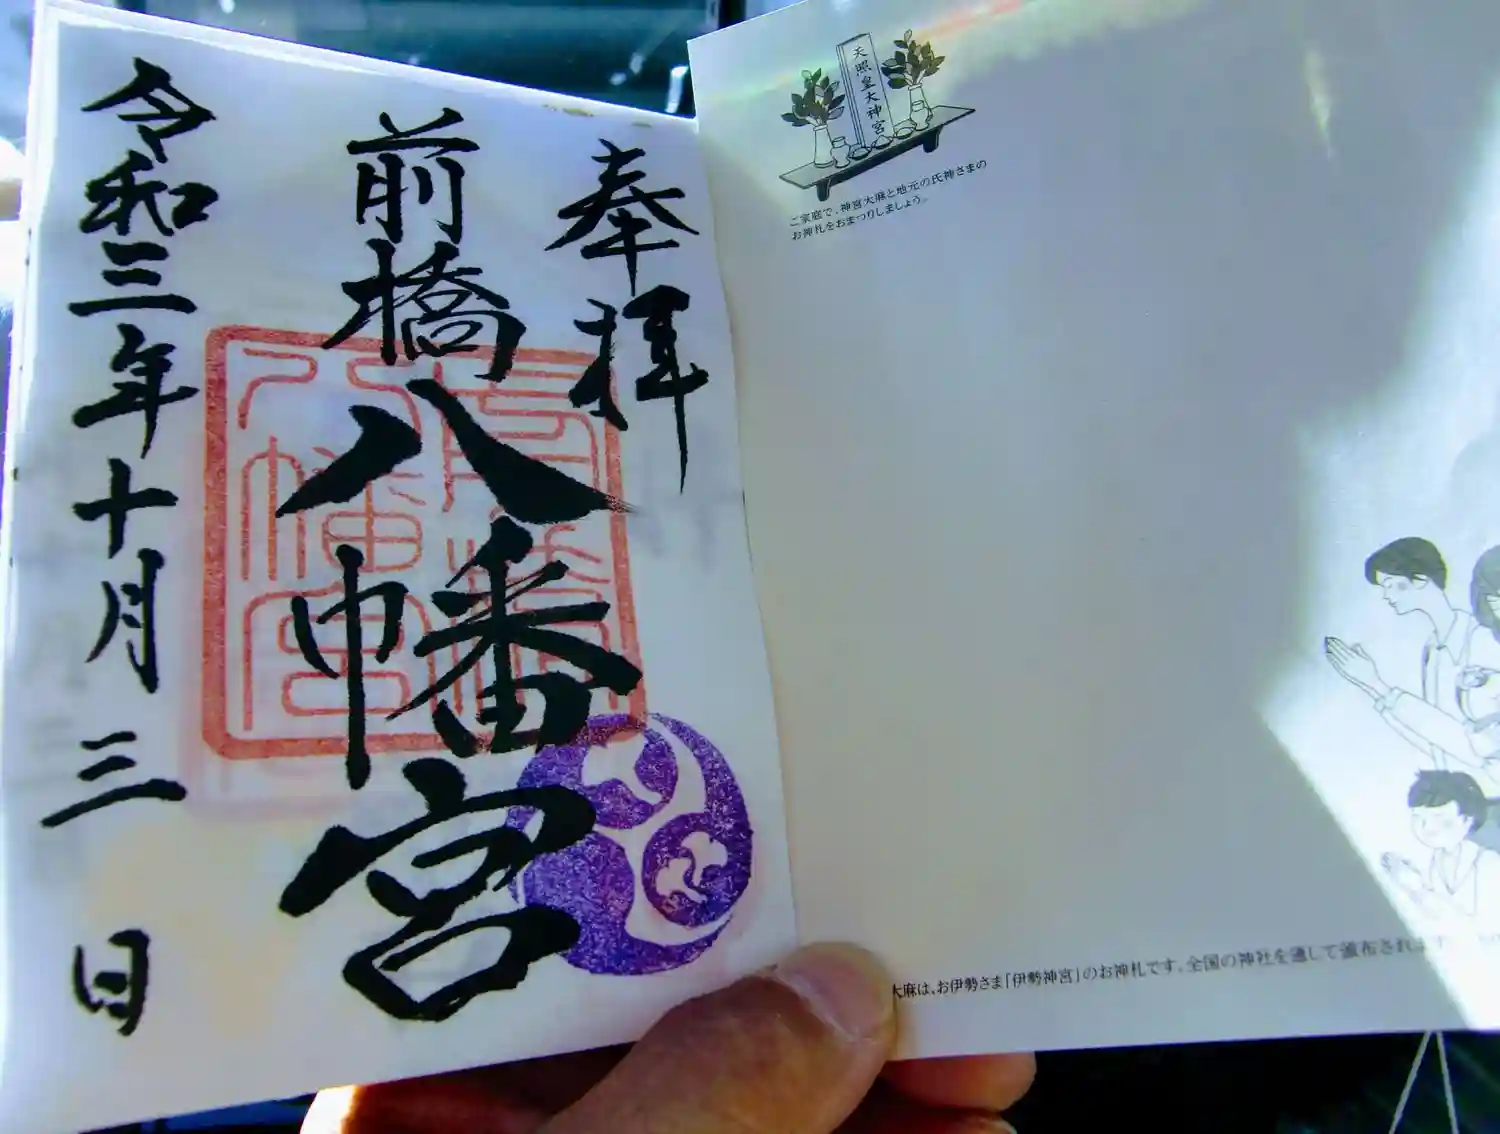 奉拝
前橋八幡宮
令和三年十月三日
天照皇大神宮
ご家庭で、神宮大麻と地元の氏神さまの
お神札をおまつりしましょう。
大麻は、お伊勢さま「伊勢神宮」のお神札です。全国の神社を通して頒布されます